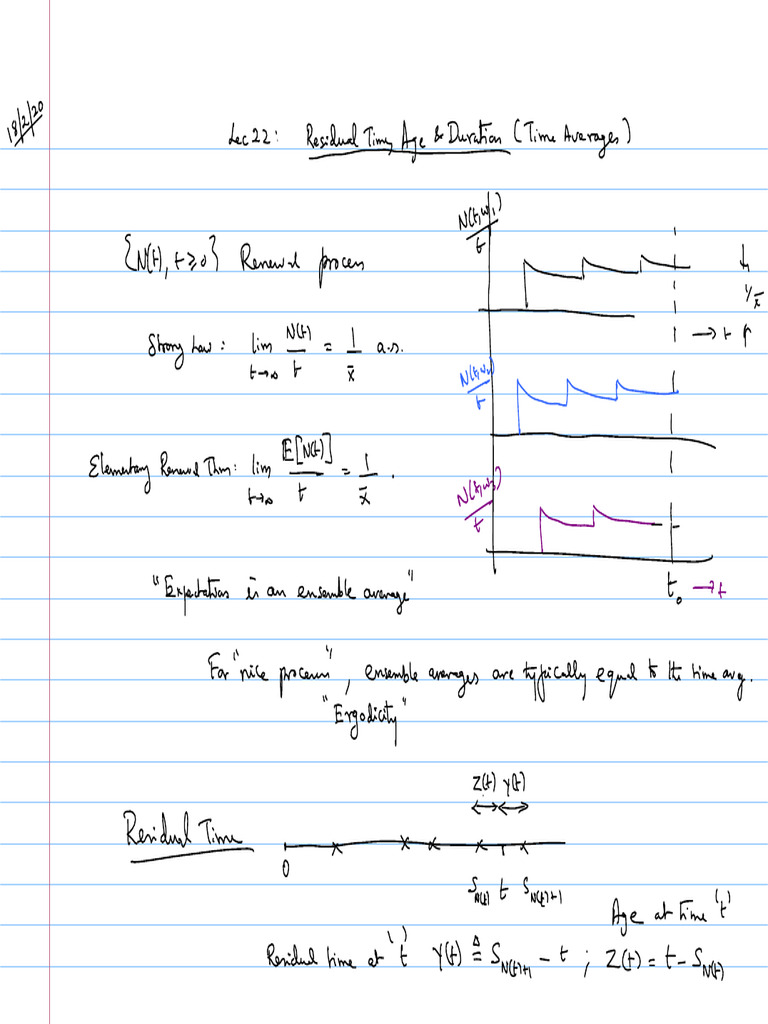 18/2/20
Lec 22: Residual Time, Age & Duration (Time Averages)
N(t,ω₁)/t
{N(t), t≥0} Renewal process
1/x̄
→ t
Strong Law: lim t→∞ N(t)/t = 1/x̄ a.s.
N(t,ω₂)/t
Elementary Renewal Thm: lim t→∞ E[N(t)]/t = 1/x̄ .
N(t,ω₃)/t
t₀ → t
"Expectation is an ensemble average"
For "nice process", ensemble averages are typically equal to the time avg.
"Ergodicity"
Z(t) Y(t)
Residual Time
0
S_N(t) t S_N(t)+1
Age at time 't'
Residual time at 't' Y(t) ≜ S_N(t)+1 − t ; Z(t) = t − S_N(t)